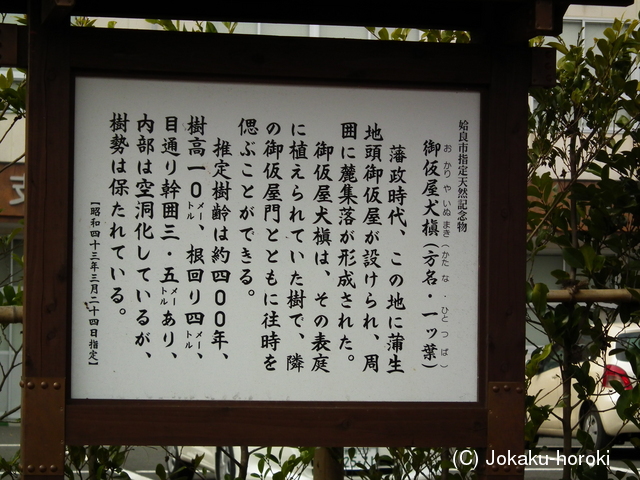 姶良市指定天然記念物
御仮屋犬槇(方名・一ッ葉)
おかりやいぬまき(かたな・ひとつば)
藩政時代、この地に蒲生
地頭御仮屋が設けられ、周
囲に麓集落が形成された。
御仮屋犬槇は、その表庭
に植えられていた樹で、隣
の御仮屋門とともに往時を
偲ぶことができる。
推定樹齢は約四00年、
樹高一0メートル、根回り四メートル、
目通り幹囲三・五メートルあり、
内部は空洞化しているが、
樹勢は保たれている。
【昭和四十三年三月二十四日指定】
(C) Jokaku-horoki